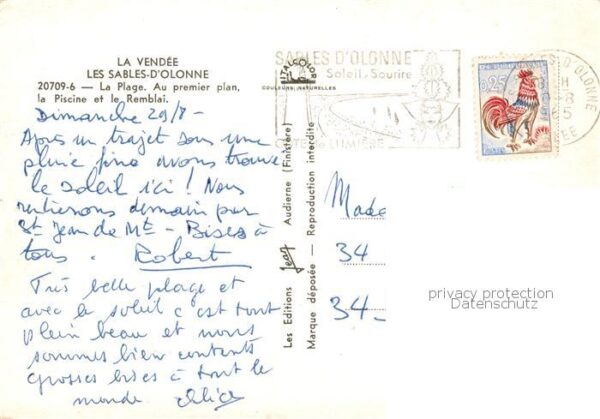 LA VENDÉE
LES SABLES-D'OLONNE
20709-6 — La Plage. Au premier plan,
la Piscine et le Remblai.
Dimanche 29/8 -
Après un trajet sous une
pluie fine avons trouvé
le soleil ici ! Nous
rentrerons demain par
St Jean de Mts - Bises à
tous. Robert
Très belle plage et
avec le soleil c'est tout
plein beau et nous
sommes bien contents
grosses bises à tout le
monde Alice
ITALCOLOR
COULEURS NATURELLES
Les Editions Jean Audierne (Finistère)
Marque déposée — Reproduction interdite
SABLES D'OLONNE
Soleil - Sourire
LUMIÈRE
0,25
D'OLONNE
Made
34
34-
privacy protection
Datenschutz